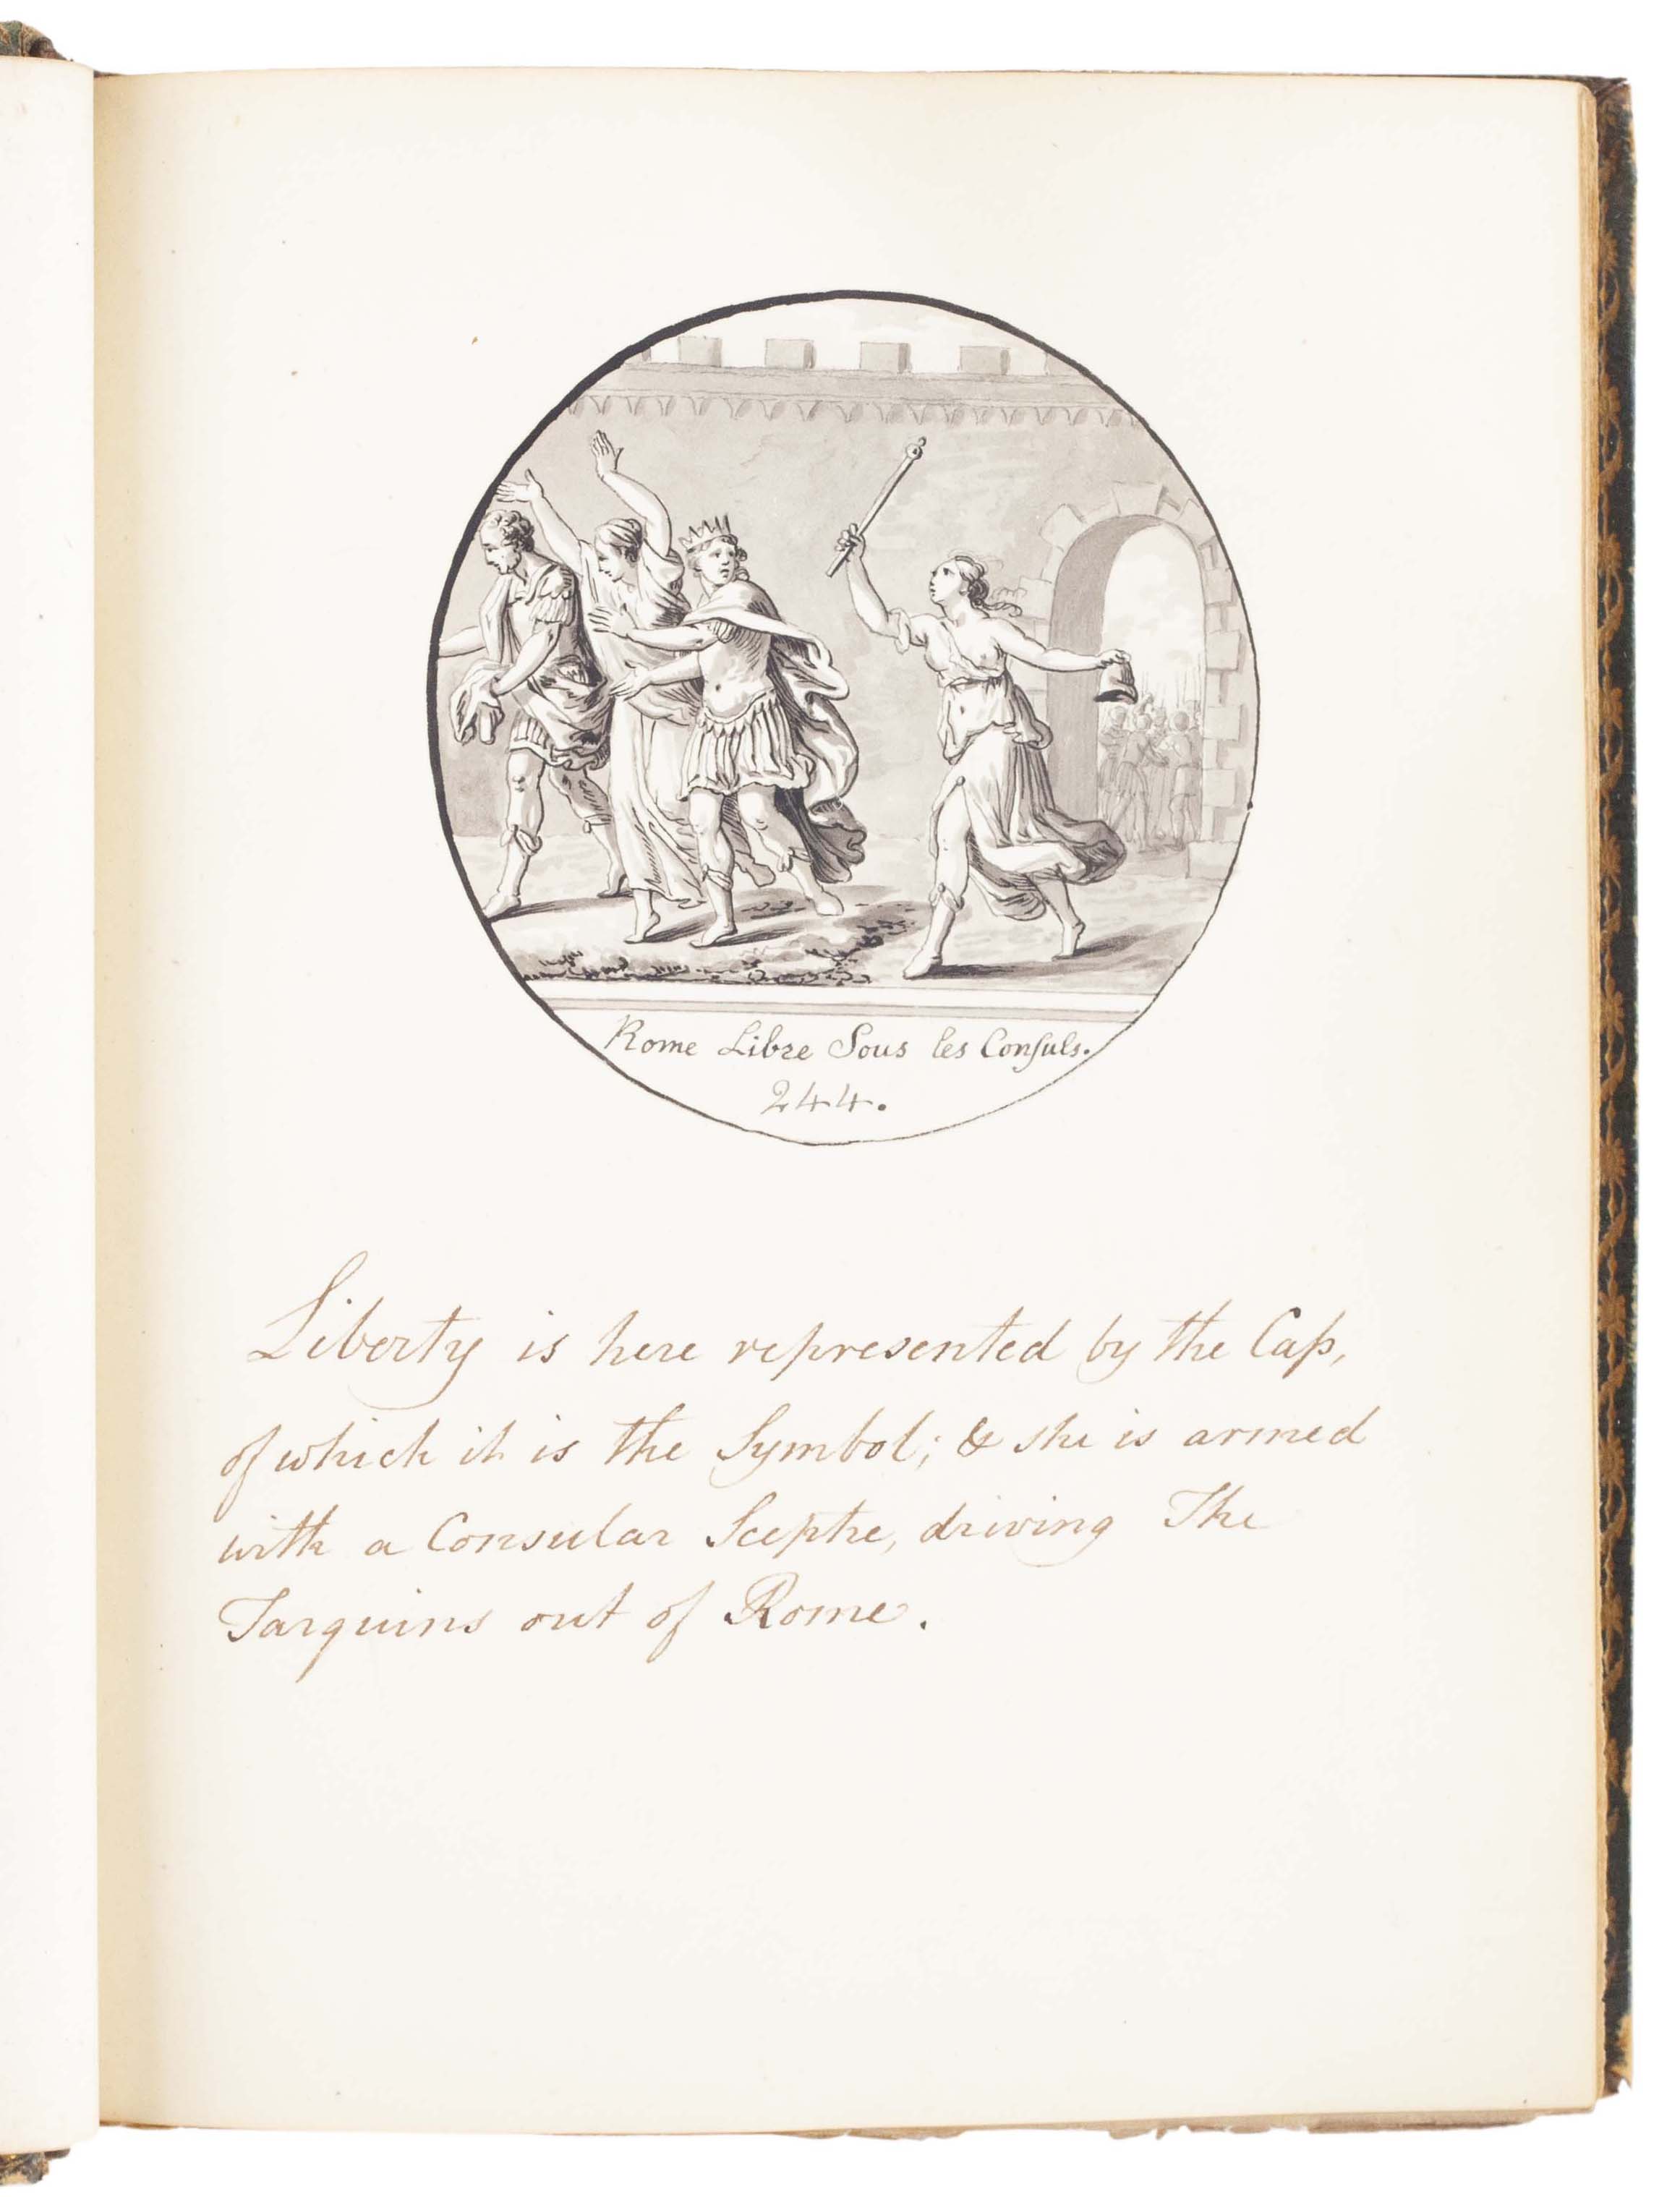 Rome Libre Sous les Conſuls.
244.
Liberty is here represented by the Cap,
of which it is the Symbol; & she is armed
with a Consular Sceptre, driving The
Tarquins out of Rome.